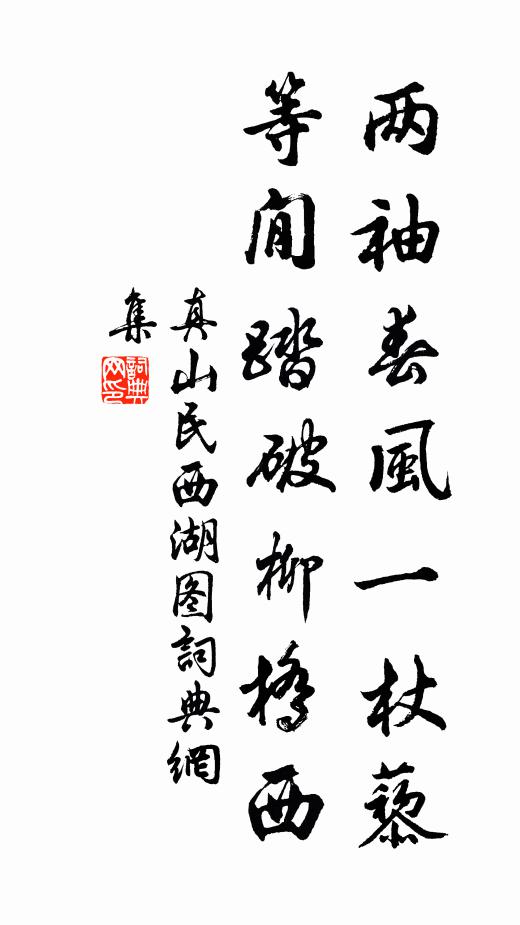 两袖春風一杖藜
等閒踏破柳橋西
真山民西湖图詞典網
集
詞典
网印